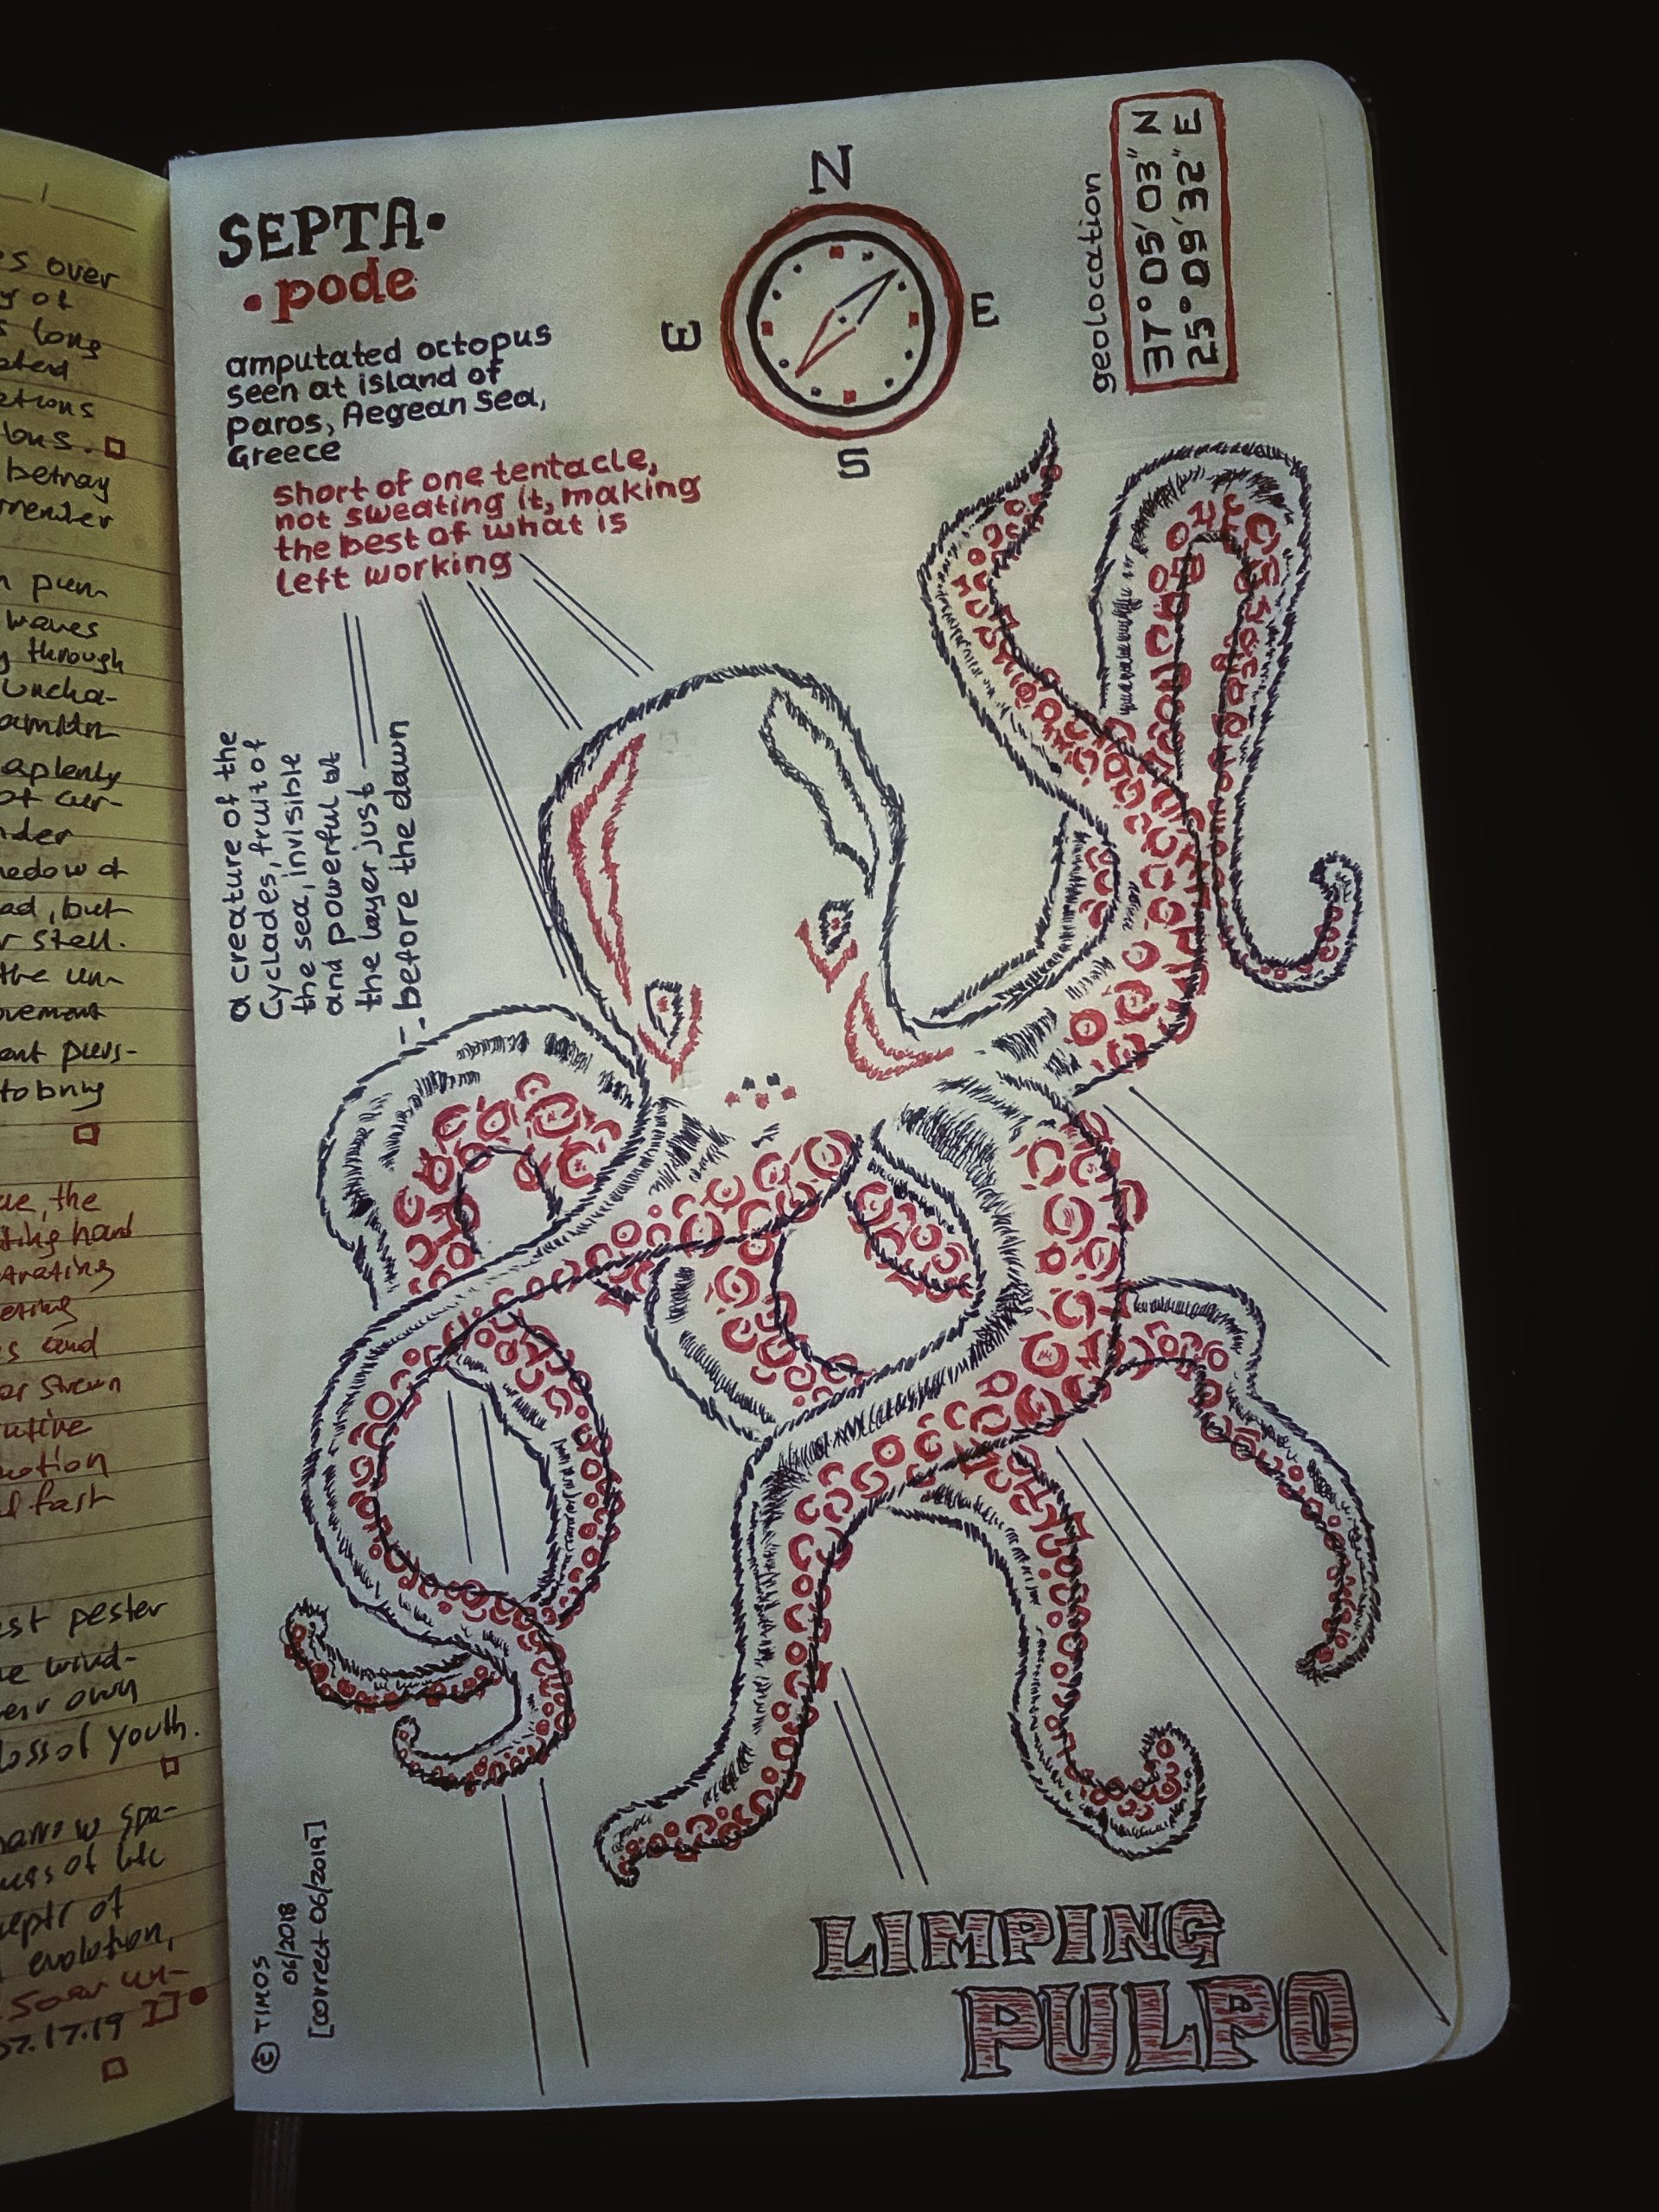 s over
y of
s long
ations
betray
pun
waves
through
aplenty
of cur-
nder
ad, but
r stell.
the un-
ovement
ent purs-
to bring
ue, the
ting hard
strating
s and
or strewn
fast
pester
e wind-
eir own
loss of youth.
narrow spa-
of
evolution,
soar un-
07.17.19 ]]
SEPTA•
•pode
amputated octopus
seen at island of
paros, Aegean Sea,
Greece
short of one tentacle,
not sweating it, making
the best of what is
left working
N
E
E
S
geolocation
37° 05' 03" N
25° 09' 32" E
a creature of the
Cyclades, fruit of
the sea, invisible
and powerful at
the layer just
before the dawn
© TIMOS
06/2018
[correct 06/2019]
LIMPING
PULPO